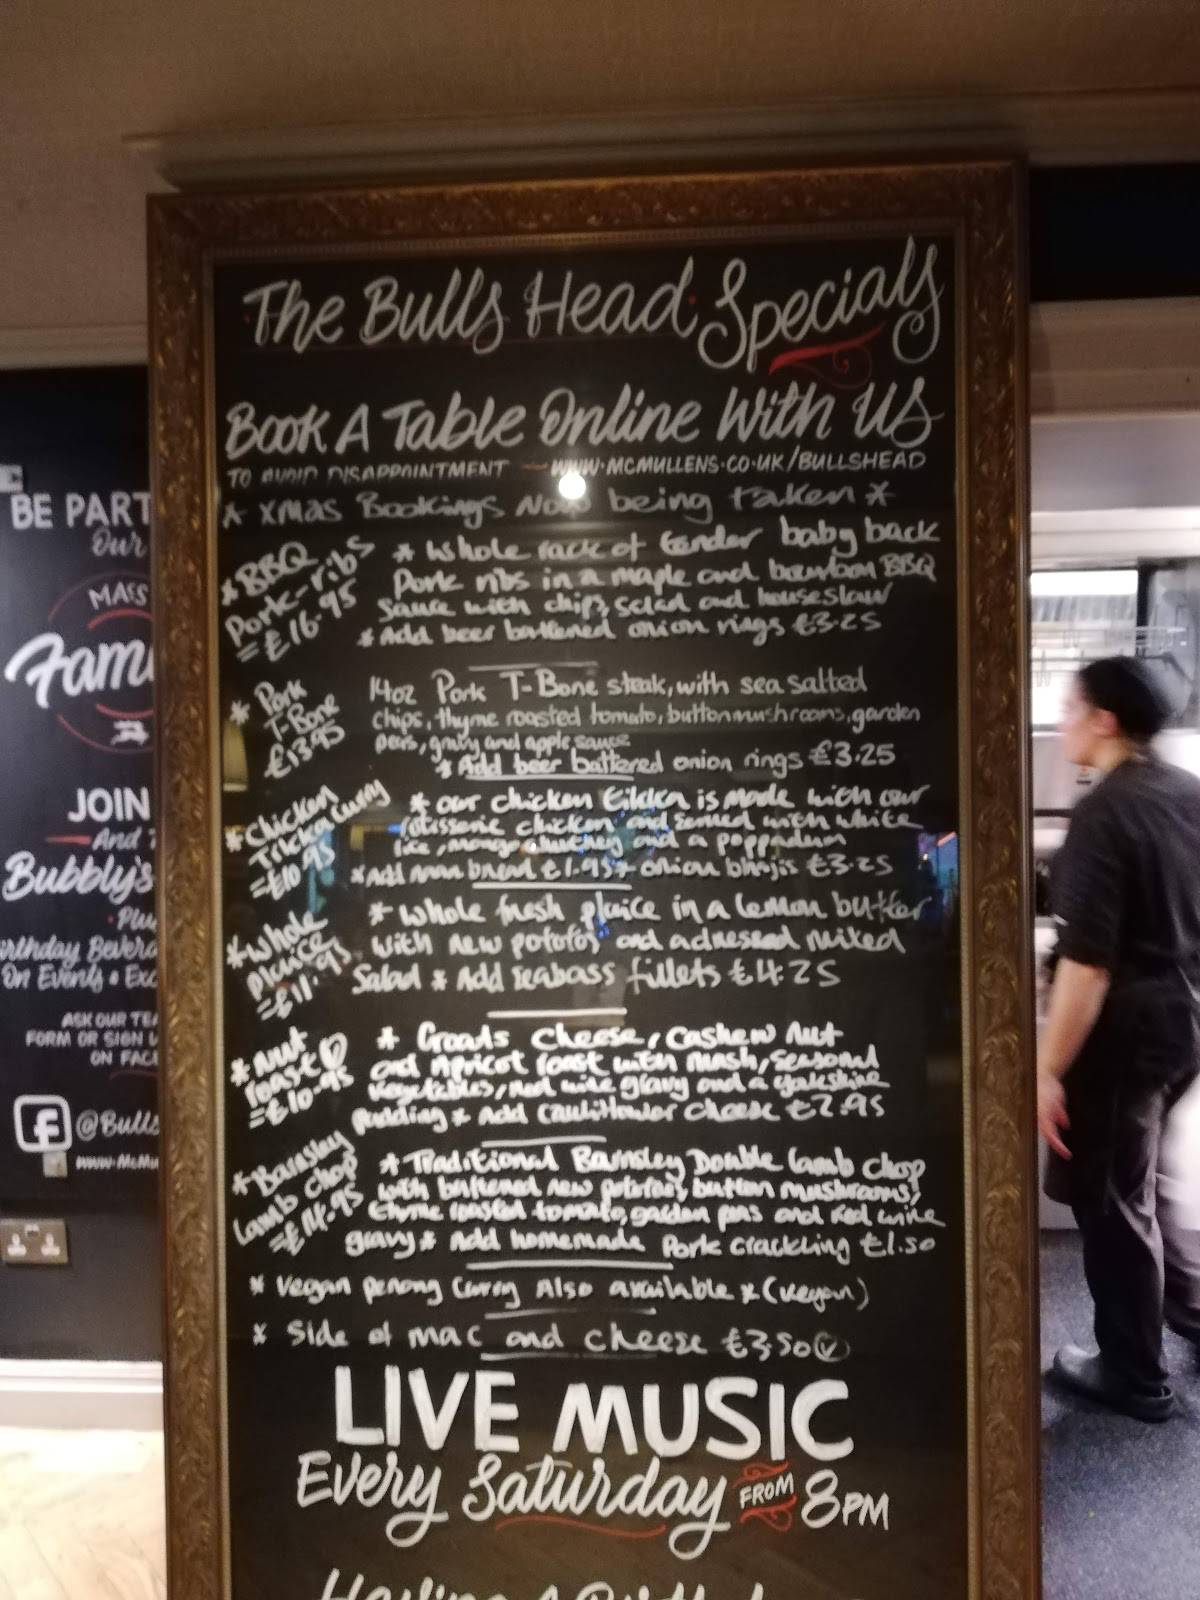 The Bulls Head Specials
Book A Table Online With Us
TO AVOID DISAPPOINTMENT - WWW.MCMULLENS.CO.UK/BULLSHEAD
* Xmas Bookings Now being taken *
* BBQ
Pork-ribs
= £16.95
* Whole rack of tender baby back
Pork ribs in a maple and bourbon BBQ
Sauce with chips, salad and house slaw
* Add beer battered onion rings £3.25
* Pork
T-Bone
£13.95
14oz Pork T-Bone steak, with sea salted
chips, thyme roasted tomato, button mushrooms, garden
peas, gravy and apple sauce
* Add beer battered onion rings £3.25
* Chicken
Tikka curry
= £10.95
* our chicken tikka is made with our
rotisserie chicken and served with white
rice, mango chutney and a poppadum
* Add naan bread £1.95 + onion bhajis £3.25
* Whole
plaice
= £11.95
* Whole fresh plaice in a lemon butter
with new pototoj and adressed mixed
Salad * Add seabass fillets £4.25
* nut
roast V
= £10.95
* Goats cheese, cashew nut
and Apricot roast with mash, seasonal
vegetables, red wine gravy and a yorkshire
pudding * Add cauliflower cheese £2.95
* Barnsley
lamb chop
= £14.95
* Traditional Barnsley Double lamb chop
with buttered new pototoes, button mushrooms,
thyme roasted tomato, garden peas and red wine
gravy * Add homemade Pork crackling £1.50
* Vegan penang curry Also available * (vegan)
* Side of mac and cheese £3.50 V
LIVE MUSIC
Every Saturday FROM 8PM
BE PART
Our
MACS
Fam
JOIN
And
Bubbly's
Plu
irthday Bevera
On Events + Exc
ASK OUR TE
FORM OR SIGN U
ON FAC
f @Bulls
www.McMu